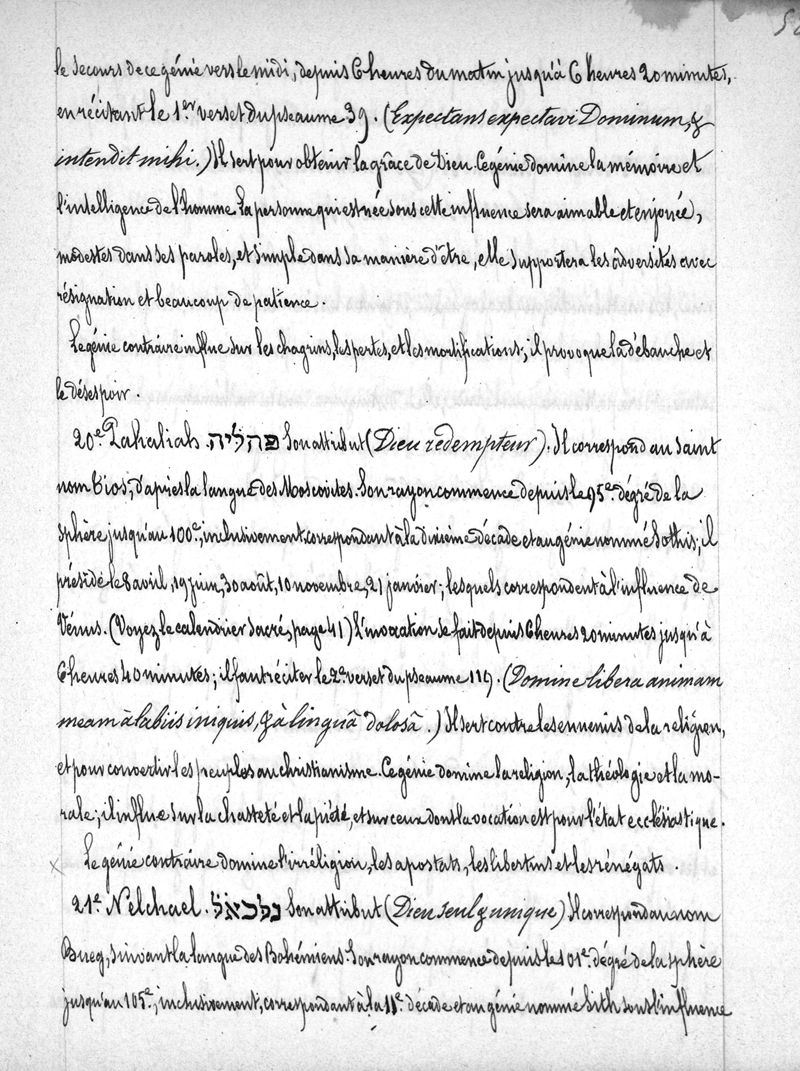 le secours de ce génie vers le midi, depuis 6 heures du matin jusqu'à 6 heures 20 minutes,
en récitant le 1er verset du pseaume 39. (Expectans expectavi Dominum, &
intendit mihi.) Il sert pour obtenir la grâce de Dieu. Ce génie domine la mémoire et
l'intelligence de l'homme. La personne qui est née sous cette influence sera aimable et enjouée,
modestes dans ses paroles, et simple dans sa manière d'être, elle supportera les adversités avec
résignation et beaucoup de patience.
Le génie contraire influe sur les chagrins, les pertes, et les mortifications; il provoque la débauche et
le désespoir.
20e. Pahaliah. פהליה Son attribut (Dieu rédempteur). Il correspond au Saint
nom Bios, d'après la langue des Moscovites. Son rayon commence depuis le 95e. dégré de la
sphère jusqu'au 100e, inclusivement correspondant à la dixième décade et au génie nommé Sothis; il
préside le 8 avril, 19 juin, 30 août, 10 novembre, 21 janvier; lesquels correspondent à l'influence de
Vénus. (Voyez le calendrier Sacré, page 41) L'invocation se fait depuis 6 heures 20 minutes jusqu'à
6 heures 40 minutes; il faut réciter le 2e verset du pseaume 119. (Domine libera animam
meam à labiis iniquis, & à linguâ dolosâ.) Il sert contre les ennemis de la religion,
et pour convertir les peuples au christianisme. Ce génie domine la religion, la théologie et la mo-
rale; il influe sur la chasteté et la piété, et sur ceux dont la vocation est pour l'état ecclésiastique.
Le génie contraire domine l'irréligion, les apostats, les libertins et les rénégats.
21e. Nelchael. נלכאל Son attribut (Dieu seul & unique) Il correspond au nom
Bueg, suivant la langue des Bohémiens. Son rayon commence depuis les 01e. dégré de la sphère
jusqu'au 105e, inclusivement, correspondant à la 11e. décade et au génie nommé Sith sous l'influence